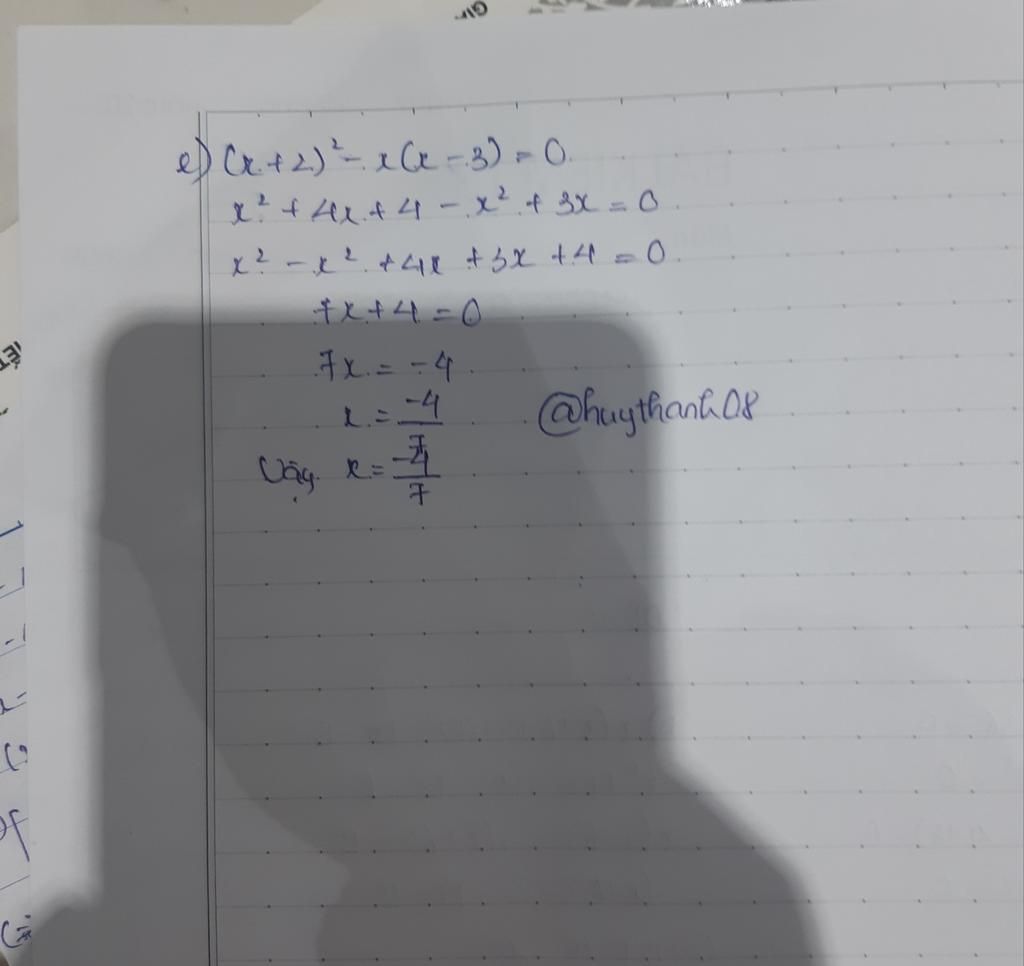 e) (x+2)² - x(x-3) = 0.
x² + 4x + 4 - x² + 3x = 0
x² - x² + 4x + 3x + 4 = 0
7x + 4 = 0
7x = -4
x = -4/7
@huythanh08
Vậy x = -4/7